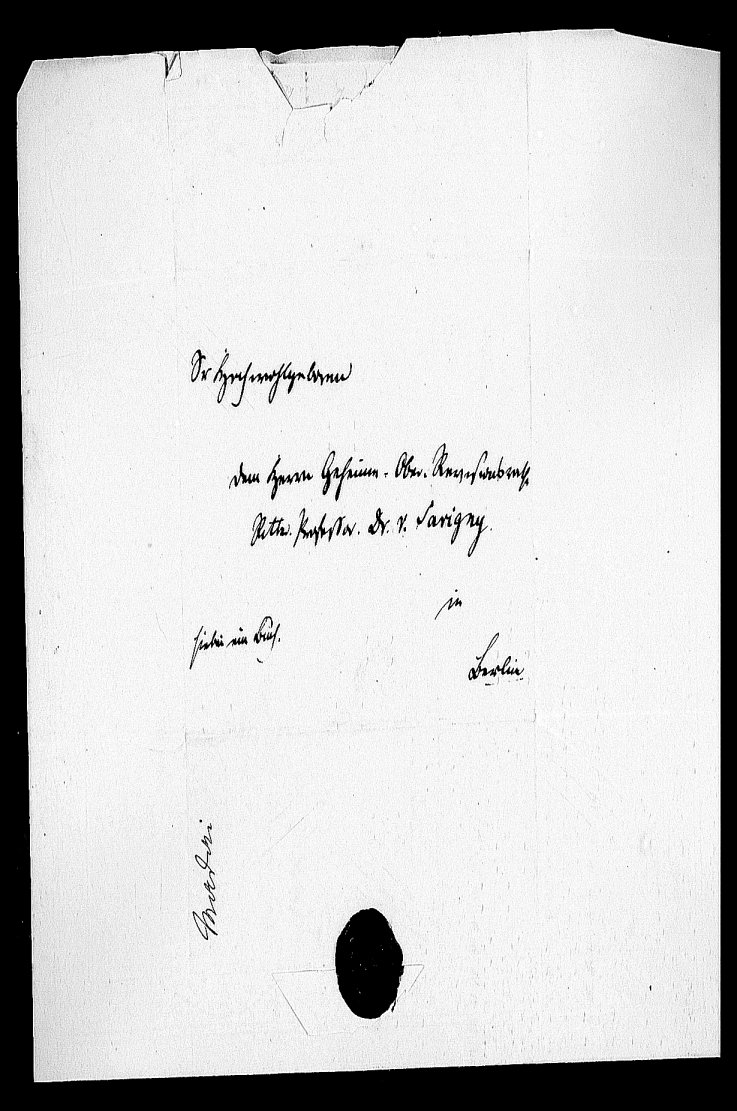 Sr Hochwohlgeboren
dem Herrn Geheime-Ober-Revisionsrath
Ritter. Professor. Dr. v. Savigny.
in
hiebei ein Buch.
Berlin.